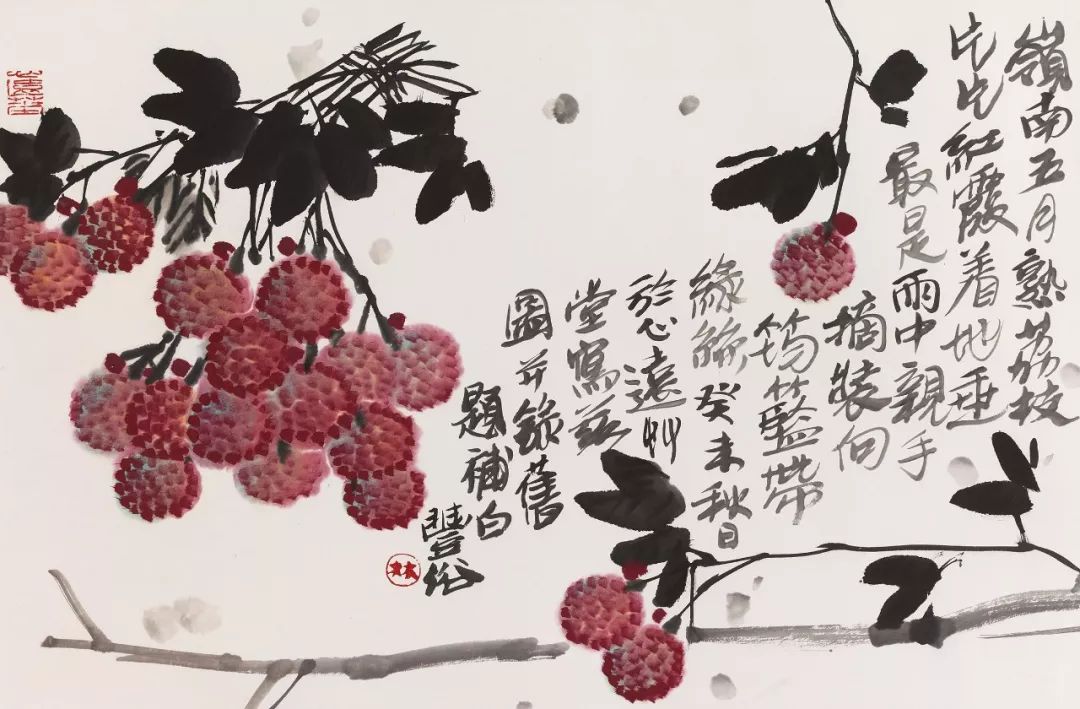 嶺南五月熟荔枝
片片紅霞着地垂
最是雨中親手
摘裝向
筠籃帶
綠歸癸未秋日
於心遠草
堂寫茲
圖并錄舊
題補白
豐俗
林